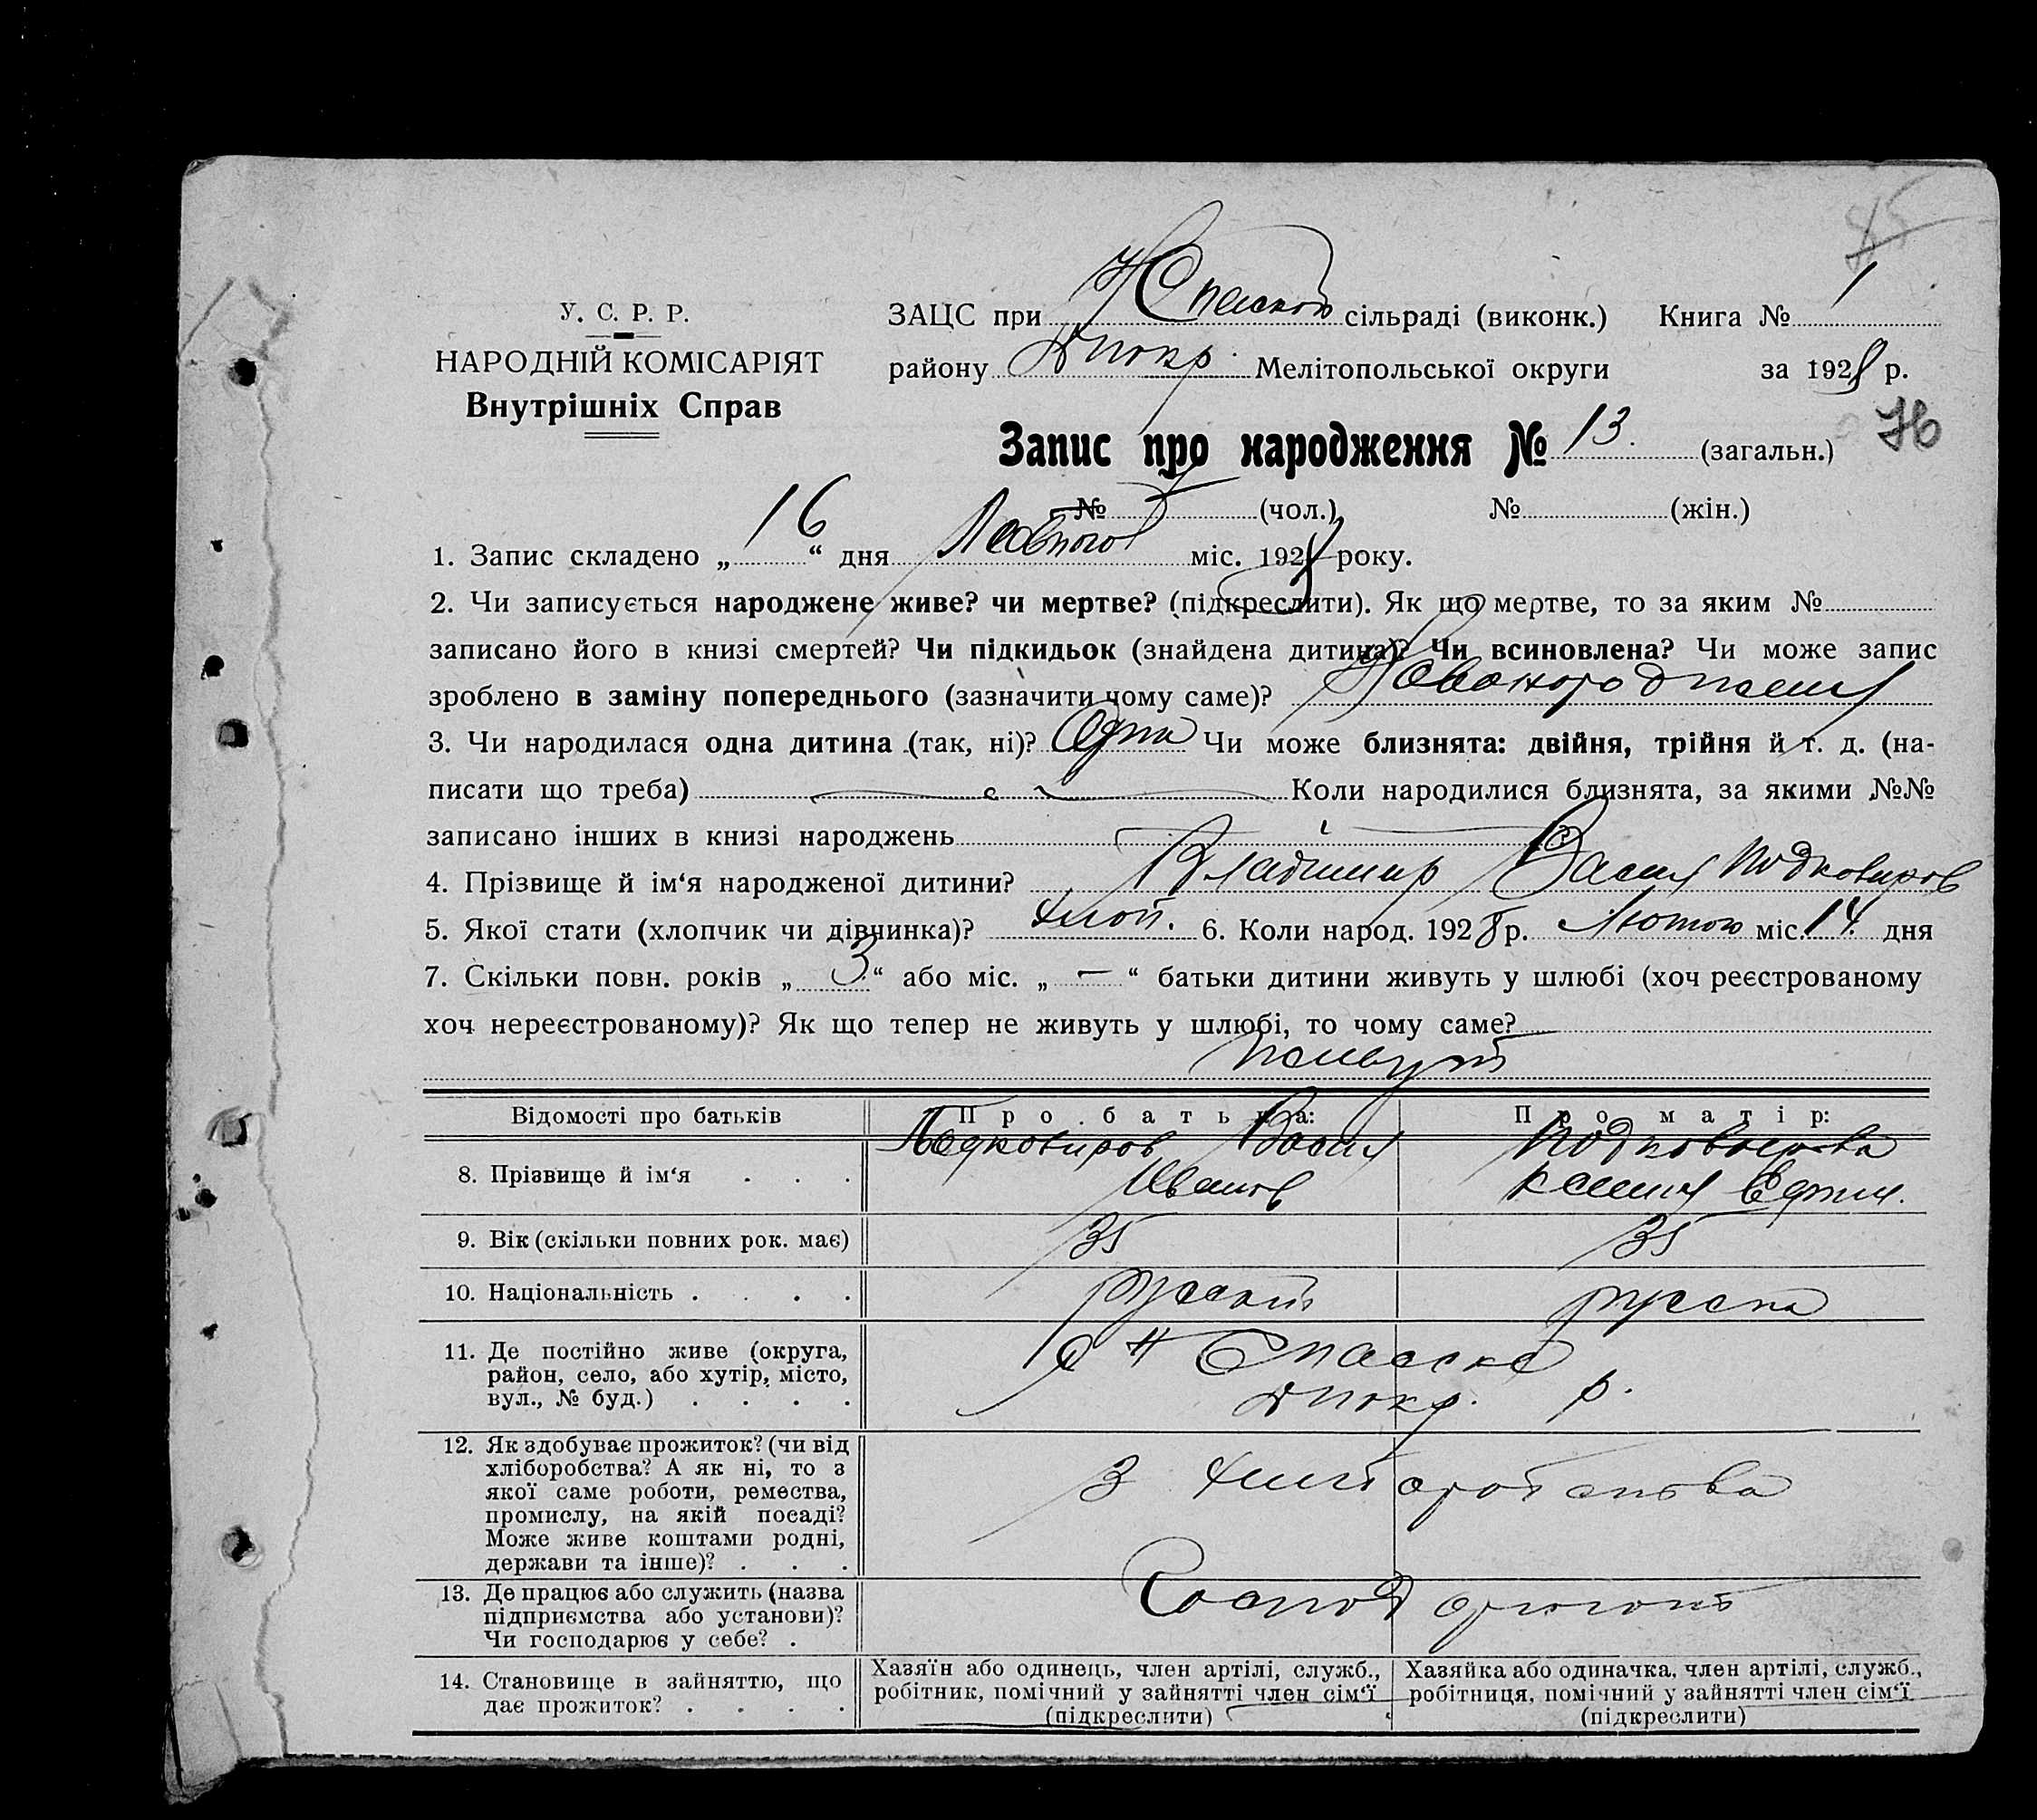 45
У. С. Р. Р.
НАРОДНІЙ КОМІСАРІЯТ
Внутрішніх Справ
ЗАЦС при Н Спаской сільраді (виконк.) Книга № 1
району Мелітопольської округи за 1928 р.
Запис про народження № 13. (загальн.)
№ 7 (чол.) № (жін.)
1. Запис складено „ 16 “ дня Лютого міс. 1928 року.
2. Чи записується народжене живе? чи мертве? (підкреслити). Як що мертве, то за яким №
записано його в книзі смертей? Чи підкидьок (знайдена дитина)? Чи всиновлена? Чи може запис
зроблено в заміну попереднього (зазначити чому саме)?
3. Чи народилася одна дитина (так, ні)? Одна Чи може близнята: двійня, трійня й т. д. (на-
писати що треба) Коли народилися близнята, за якими №№
записано інших в книзі народжень
4. Прізвище й ім‘я народженої дитини? Владимир Васил Подковиров
5. Якої стати (хлопчик чи дівчинка)? хлоп. 6. Коли народ. 1928 р. Лютого міс. 14 дня
7. Скільки повн. років „ 3 “ або міс. „ — “ батьки дитини живуть у шлюбі (хоч реєстрованому
хоч нереєстрованому)? Як що тепер не живуть у шлюбі, то чому саме?
живут
Відомості про батьків Про батька: Про матір:
8. Прізвище й ім‘я . . . Подковиров Васил Иванов Подковирова Ксения
9. Вік (скільки повних рок. має) 35 35
10. Національність . . . . русский русска
11. Де постійно живе (округа, район, село, або хутір, місто, вул., № буд.) . . . . с Н Спасске р.
12. Як здобуває прожиток? (чи від хліборобства? А як ні, то з якої саме роботи, ремества, промислу, на якій посаді? Може живе коштами родні, держави та інше)? . . . З хліборобства
13. Де працює або служить (назва підприємства або установи)? Чи господарює у себе? .
14. Становище в зайняттю, що дає прожиток? . . . . Хазяїн або одинець, член артілі, служб., робітник, помічний у зайнятті член сім‘ї (підкреслити) Хазяйка або одиначка, член артілі, служб., робітниця, помічний у зайнятті член сім‘ї (підкреслити)